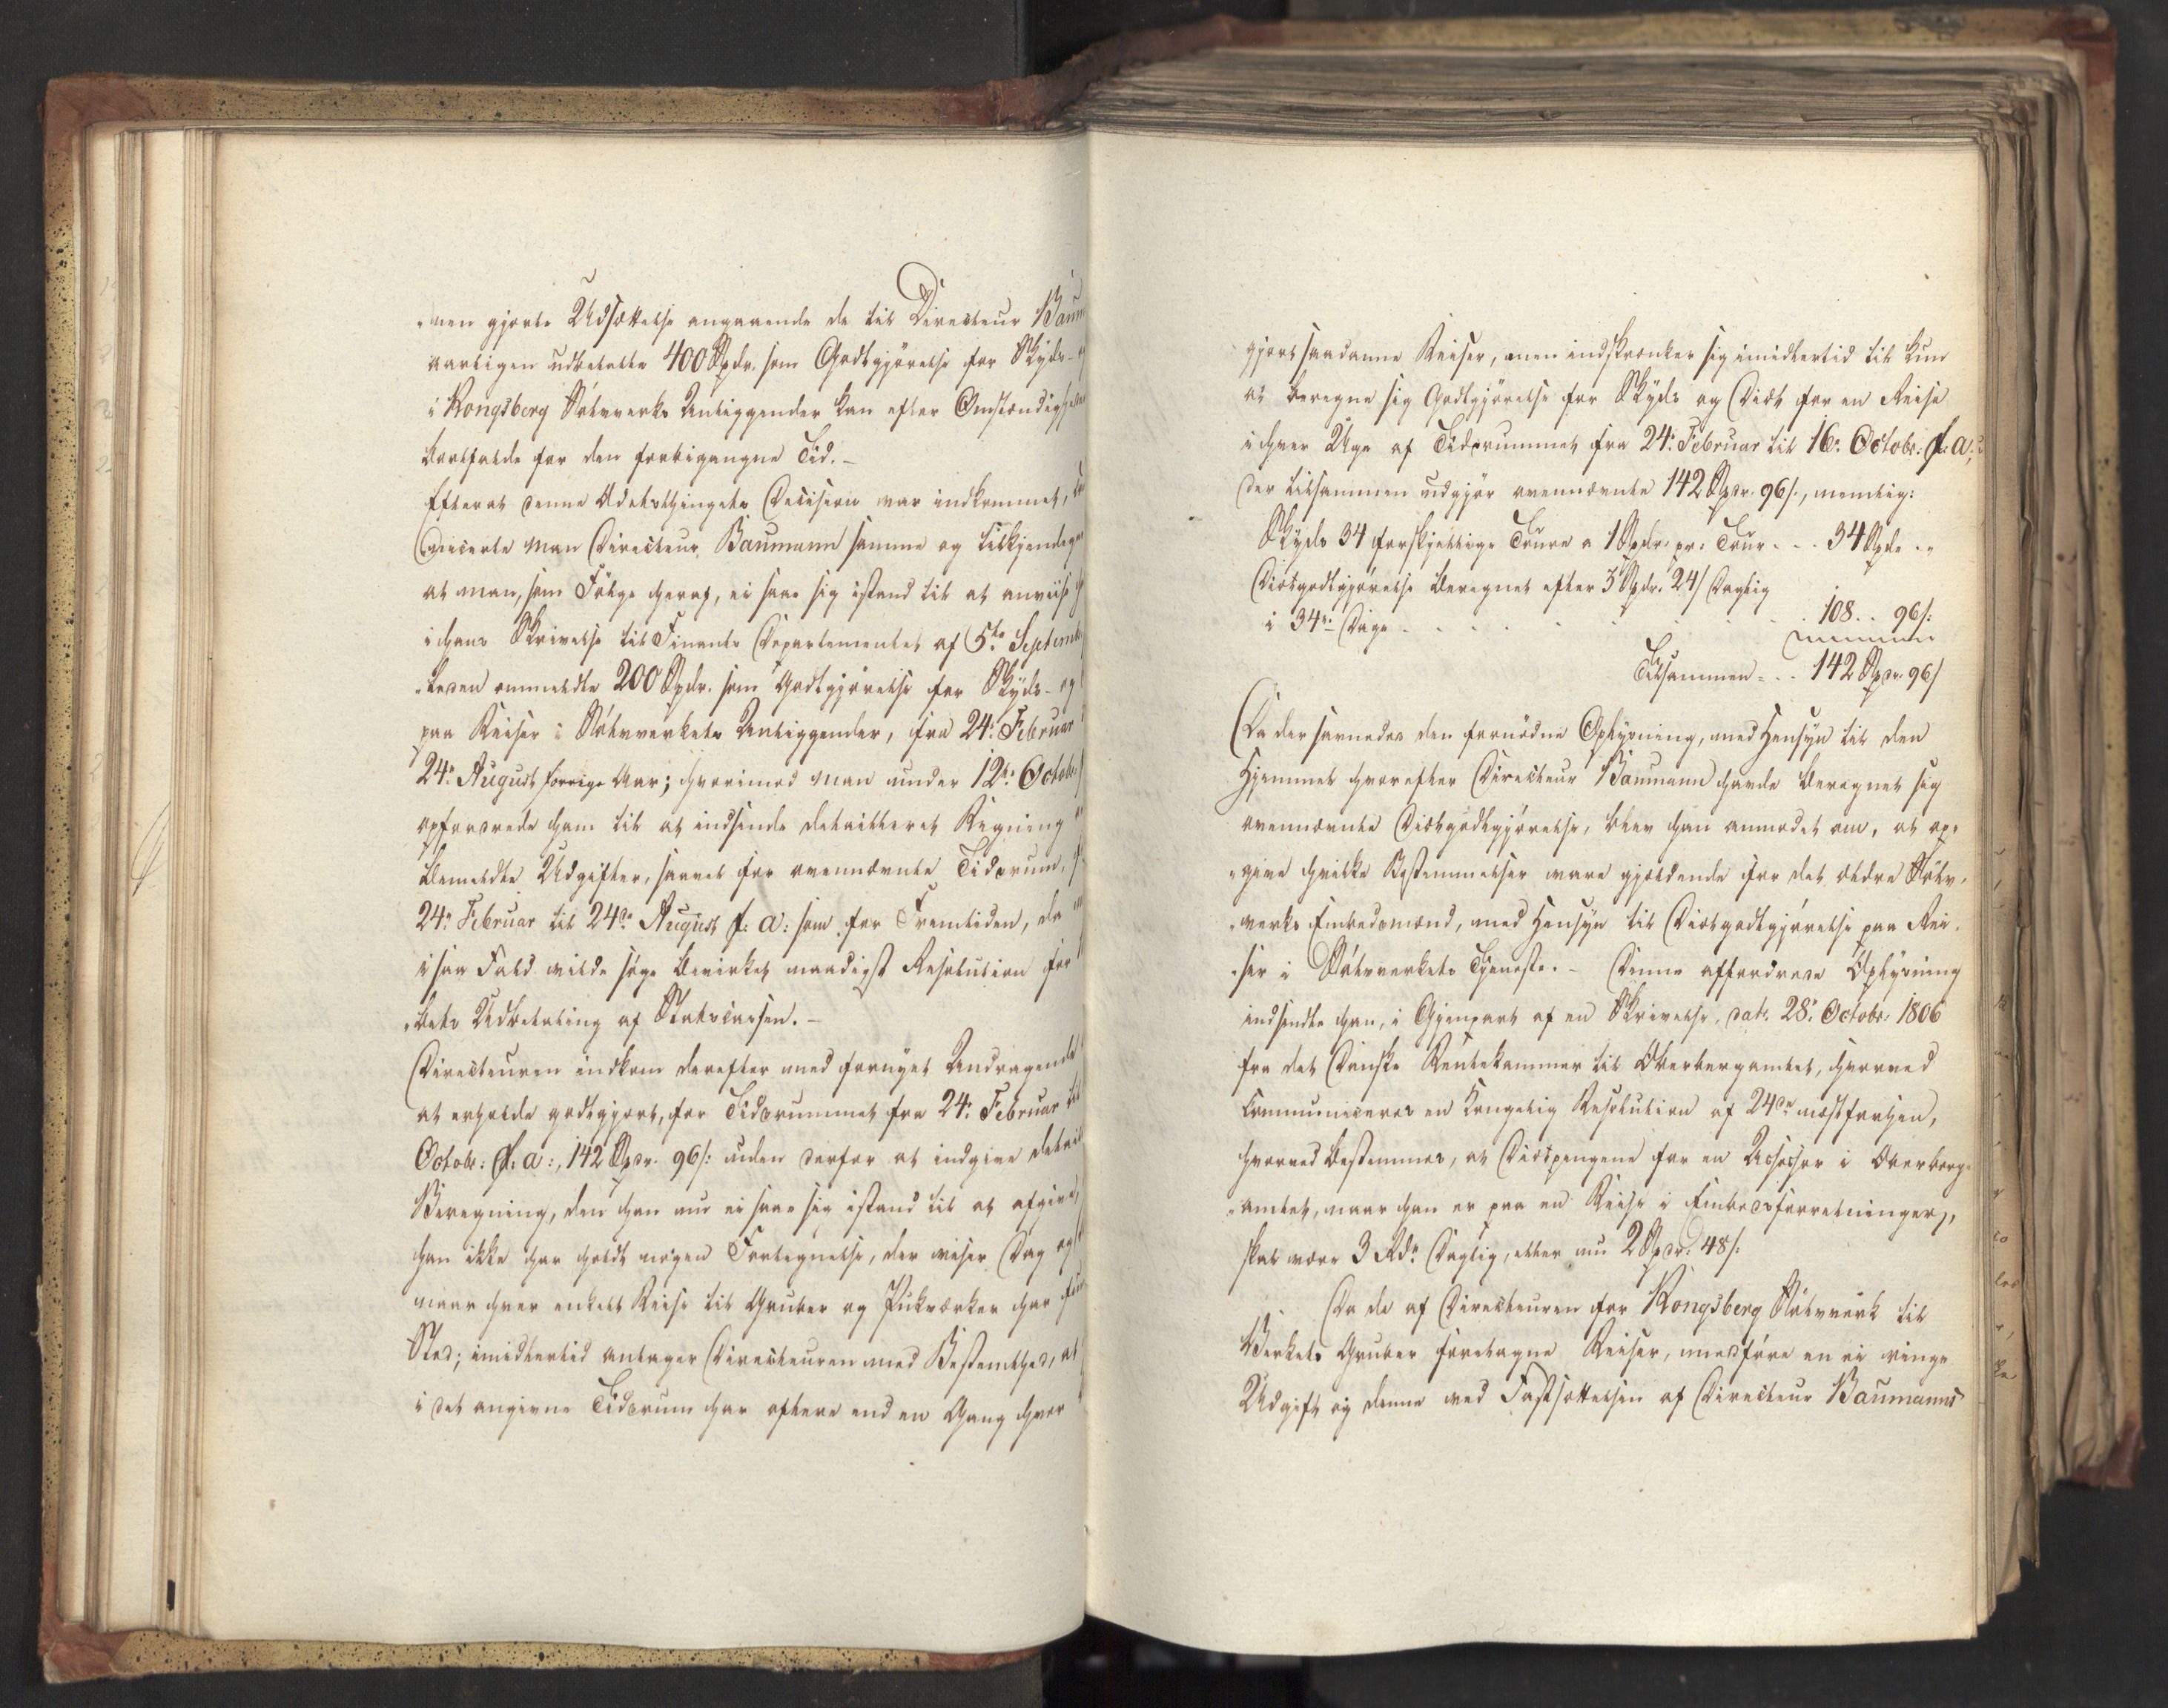 „nen gjorte Udsættelse angaaende de til Directeur Baum
aarligen udbetalte 400 Spdr. som Godtgjörelse for Skyds-
i Kongsberg Sölvverks Anliggender kan efter Omstændighed
bortfalde for den forbigangne Tid. –
Efterat denne Odelsthingets Decision var indkommet,
municerte man Directeur Baumann samme og tilkjendega
at man, som Fölge heraf, ei saae sig istand til at anviise
i hans Skrivelse til Finants Departementet af 5te Septemb
ommeldte 200 Spdr. som Godtgjörelse for Skyds- og
paa Reiser i Sölvverkets Anliggender, fra 24: Februar
24: August forrige Aar; hvorimod man under 12te Octobr
opfordrede ham til at indsende detailleret Regning
bemeldte Udgifter, saavel for ovennævnte Tidsrum,
24: Februar til 24de August f: a: som for Fremtiden, da
i saa Fald vilde söge bevirket naadigst Resolution for
„bets Udbetaling af Statscassen. –
Directeuren indkom derefter med fornyet Andragende
at erholde godtgjort, for Tidsrummet fra 24: Februar til
Octobr: f: a:, 142 Spdr. 96 s: uden derfor at indgive detail
Beregning, den han nu ei saae sig istand til at afgive,
han ikke har holdt nogen Fortegnelse, der viser Dag og
naar hver enkelt Reise til Gruber og Pukværker har
Sted; imidlertid antager Directeuren med Bestemthed, at
i det angivne Tidsrum har oftere end en Gang hver
gjort saadanne Reiser, men indskrænker sig imidlertid til kun
at beregne sig Godtgjörelse for Skyds og Diæt for en Reise
i hver Uge af Tidsrummet fra 24: Februar til 16: Octobr: f: a:,
der tilsammen udgjör ovennævnte 142 Spdr. 96 s:, nemlig:
Skyds 34 forskjellige Toure a 1 Spdr: pr: Tour . . . 34 Spdr . „
Diætgodtgjörelse beregnet efter 3 Spdr. 24 s Daglig
i 34: Dage . . . . . . . 108 . . 96 s:
Tilsammen . . . 142 Spdr. 96 s
Da der savnedes den fornödne Oplysning, med Hensyn til den
Hjemmel hvorefter Directeur Baumann havde beregnet sig
ovennævnte Diætgodtgjörelse, blev han anmodet om, at op„
„give hvilke Bestemmelser vare gjældende for det ældre Sölv„
„verks Embedsmænd, med Hensyn til Diætgodtgjörelse paa Rei„
„ser i Sölvverkets Tjeneste. – Denne affordrede Oplysning
indsendte han, i Gjenpart af en Skrivelse, dat. 28: Octobr: 1806
fra det Danske Rentekammer til Overbergamtet, hvorved
communiceres en Kongelig Resolution af 24de næstforhen,
hvorved bestemmes, at Diætpengene for en Assessor i Overberg„
„amtet, naar han er paa en Reise i Embedsforretninger,
skal være 3 Rdr Daglig, eller nu 2 Spdr: 48 s:
Da de af Directeuren for Kongsberg Sölvverk til
Verkets Gruber foretagne Reiser, medföre en ei ringe
Udgift og denne ved Fastsættelsen af Directeur Baumanns